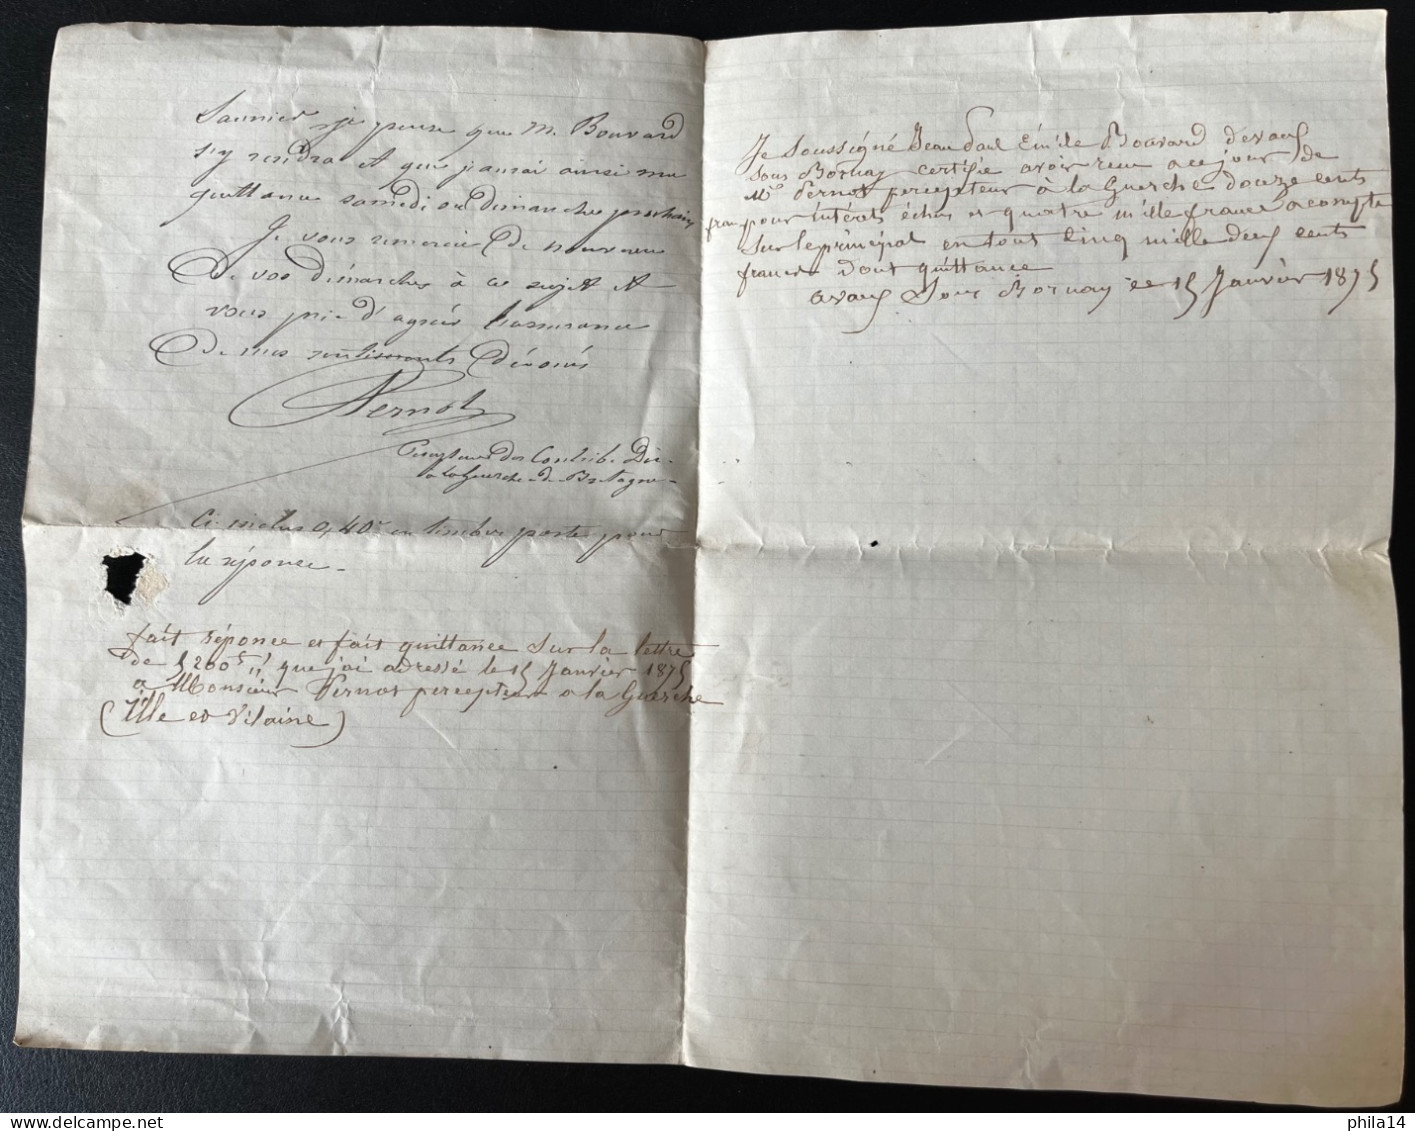 Saunier, je pense que M. Bouvard
s'y rendra et que j'aurai ainsi ma
quittance samedi ou dimanche prochain
Je vous remercie de nouveau
de vos démarches à ce sujet et
vous prie d'agréer l'assurance
de mes sentiments dévoués
Pernot
Percepteur des Contrib. Dir.
à la Guerche-de-Bretagne.
Ci-inclus 0,40c en timbres poste pour
la réponse.
fait réponce et fait quittance Sur la lettre
de 5200f que jai adressé le 15 Janvier 1875
a Monsieur Pernot percepteur a la Guerche
(Ille et Vilaine)
Je Soussigné Jean Paul Emile Bouvard d'evaux
Sous Bornay certifie avoir reçu ce jour de
Mr Pernot percepteur à la Guerche douze cents
fran pour intérêts échus et quatre mille francs acompte
Sur le principal en tout Cinq mille deux cents
francs dont quittance
avaux Sous Bornay ce 15 Janvièr 1875
phila14
delcampe.net